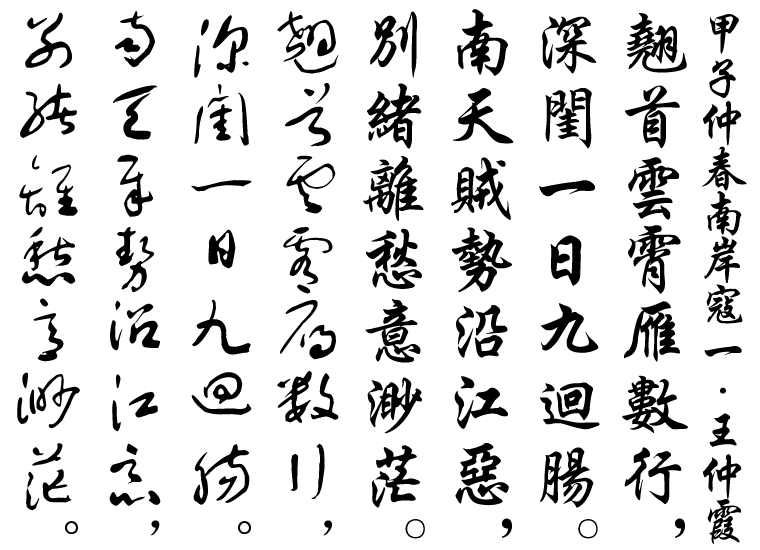 甲子仲春南岸寇一·王仲霞
翹首雲霄雁數行，
深閨一日九迴腸。
南天賊勢沿江惡，
別緒離愁意渺茫。
翹首雲霄雁數行，
深閨一日九迴腸。
南天賊勢沿江惡，
別緒離愁意渺茫。